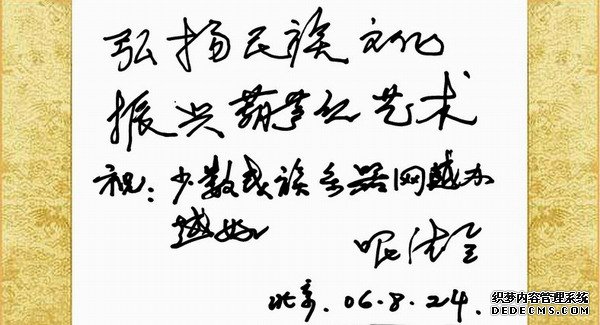 弘扬民族文化
振兴葫芦丝艺术
祝:少数民族乐器网越办
越好
哏德全
北京.06.8.24.
织梦内容管理系统
DEDECMS.COM